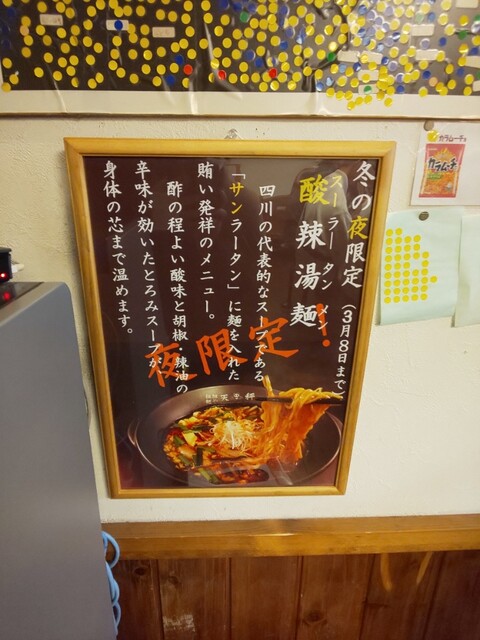 冬の夜限定
(3月8日まで)
酸辣湯麺!
スーラータンメン
四川の代表的なスープである
「サンラータン」に麺を入れた
賄い発祥のメニュー。
酢の程よい酸味と胡椒、辣油の
辛味が効いたとろみスープが、
身体の芯まで温めます。
夜限定
天手
カラムーチョ
カラムーチョ